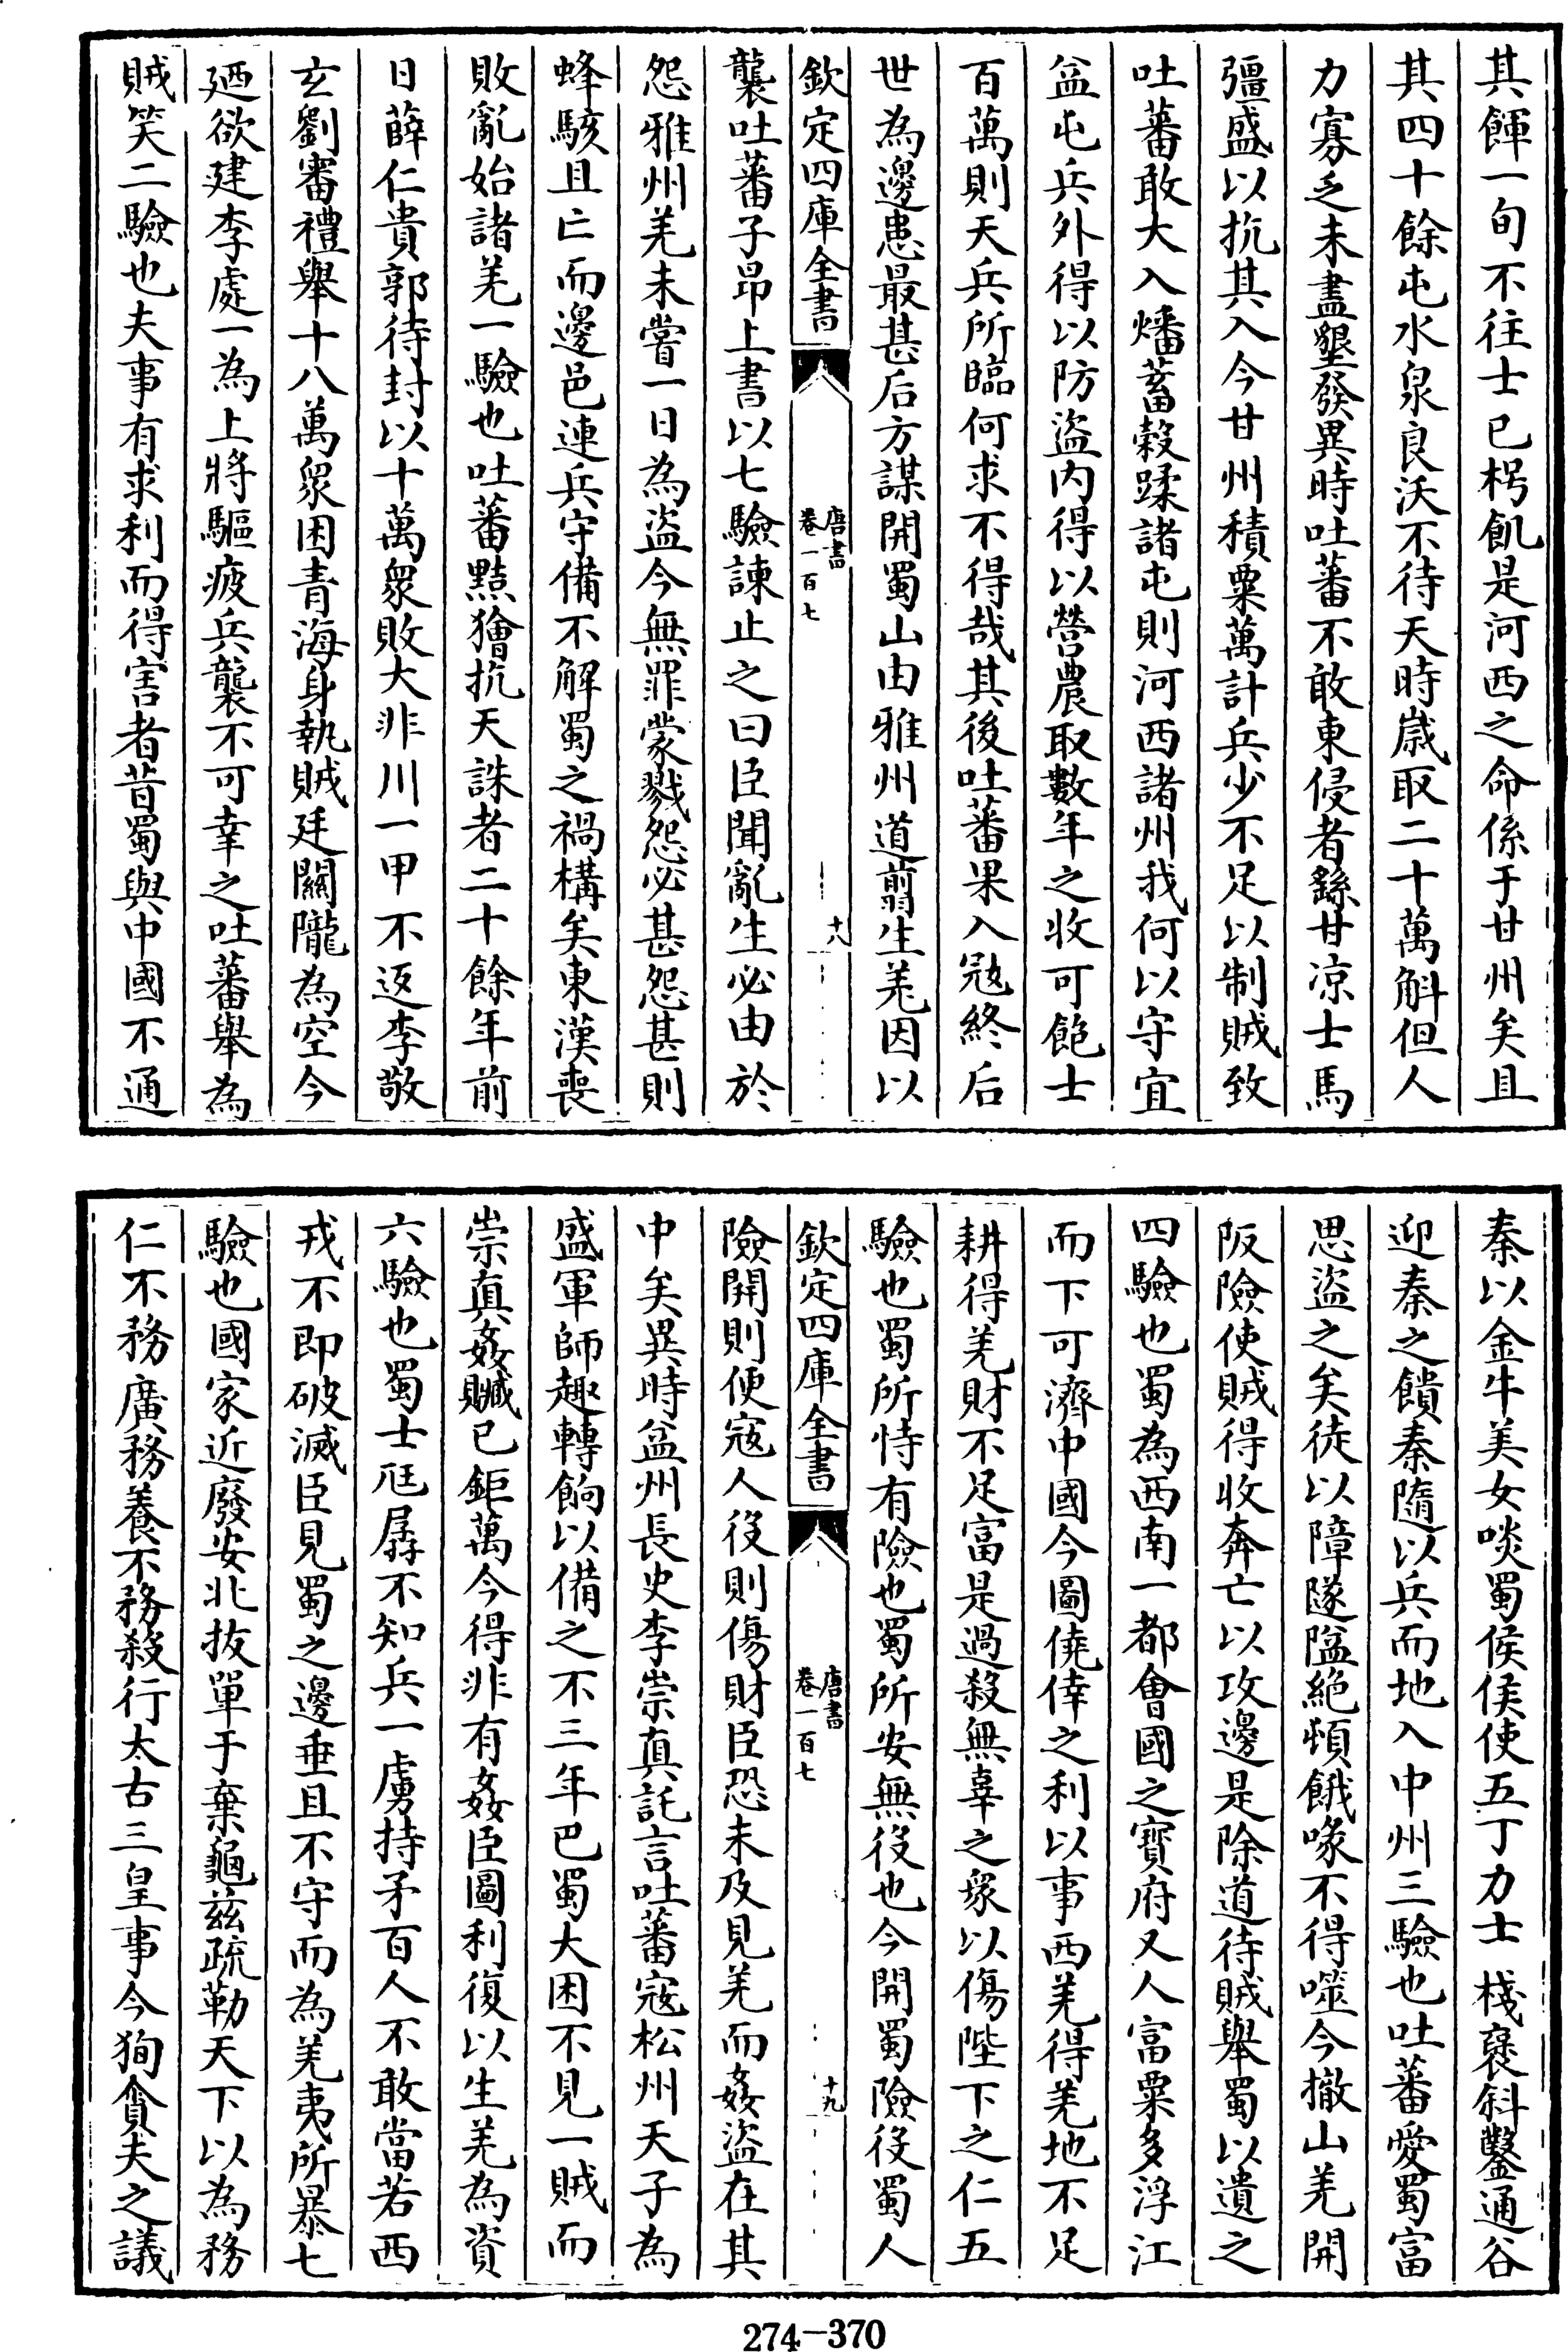 其餫一旬不往士已枵飢是河西之命係于甘州矣且
其四十餘屯水泉良沃不待天時歲取二十萬斛但人
力寡乏未盡墾發異時吐蕃不敢東侵者繇甘凉士馬
彊盛以抗其入今甘州積粟萬計兵少不足以制賊致
吐蕃敢大入燔蓄穀蹂諸屯則河西諸州我何以守宜
益屯兵外得以防盜内得以營農取數年之收可飽士
百萬則天兵所臨何求不得哉其後吐蕃果入宼終后
世為邊患最甚后方謀開蜀山由雅州道翦生羌因以
欽定四庫全書
唐書
卷一百七
十八
襲吐蕃子昂上書以七驗諫止之曰臣聞亂生必由於
怨雅州羌未嘗一日為盜今無罪蒙戮怨必甚怨甚則
蜂駭且亡而邊邑連兵守備不解蜀之禍構矣東漢喪
敗亂始諸羌一驗也吐蕃黠獪抗天誅者二十餘年前
日薛仁貴郭待封以十萬衆敗大非川一甲不返李敬
玄劉審禮舉十八萬衆困青海身執賊廷關隴為空今
廼欲建李處一為上將驅疲兵襲不可幸之吐蕃舉為
賊笑二驗也夫事有求利而得害者昔蜀與中國不通
秦以金牛美女啖蜀侯侯使五丁力士棧褒斜鑿通谷
迎秦之饋秦隨以兵而地入中州三驗也吐蕃愛蜀富
思盜之矣徒以障隧隘絕頓餓喙不得噬今撤山羌開
阪險使賊得收奔亡以攻邊是除道待賊舉蜀以遺之
四驗也蜀為西南一都會國之寶府又人富粟多浮江
而下可濟中國今圖僥倖之利以事西羌得羌地不足
耕得羌財不足富是過殺無辜之衆以傷陛下之仁五
驗也蜀所恃有險也蜀所安無役也今開蜀險役蜀人
欽定四庫全書
唐書
卷一百七
十九
險開則便宼人役則傷財臣恐未及見羌而姦盜在其
中矣異時益州長史李崇真託言吐蕃宼松州天子為
盛軍師趣轉餉以備之不三年巴蜀大困不見一賊而
崇真姦贓已鉅萬今得非有姦臣圖利復以生羌為資
六驗也蜀士尫孱不知兵一虜持矛百人不敢當若西
戎不即破滅臣見蜀之邊垂且不守而為羌夷所暴七
驗也國家近廢安北拔單于棄龜兹疏勒天下以為務
仁不務廣務養不務殺行太古三皇事今徇貪夫之議
274-370